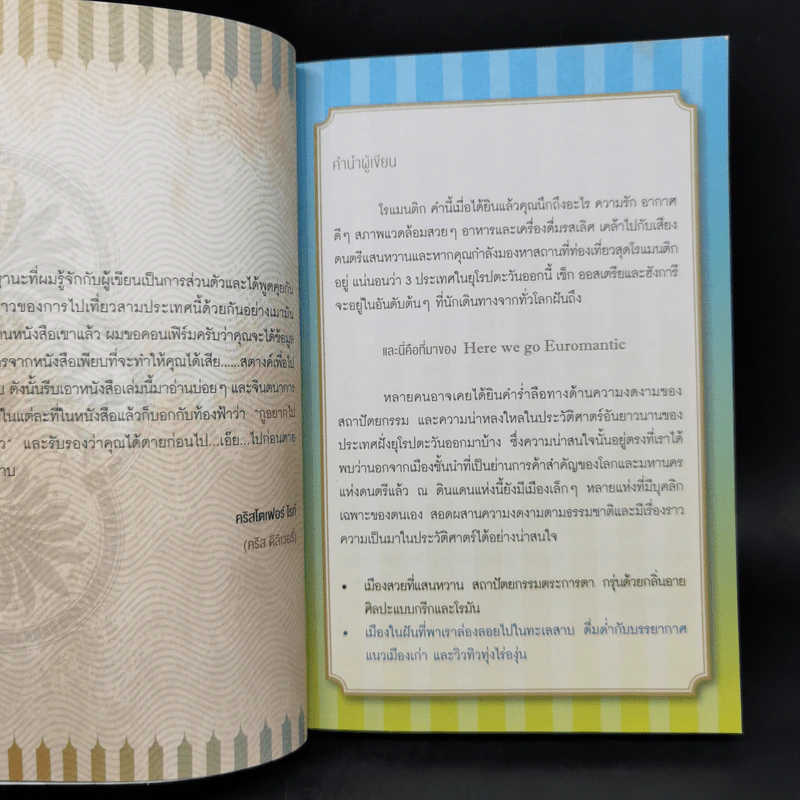 ฐานะที่ผมรู้จักกับผู้เขียนเป็นการส่วนตัวและได้พูดคุยกัน
าวของการไปเที่ยวสามประเทศนี้ด้วยกันอย่างเมามัน
านหนังสือเขาแล้ว ผมขอคอนเฟิร์มครับว่าคุณจะได้ข้อมูล
ารจากหนังสือเพียบที่จะทำให้คุณได้เสีย......สตางค์เพื่อไป
บ ดังนั้นรีบเอาหนังสือเล่มนี้มาอ่านบ่อยๆ และจินตนาการ
ในแต่ละที่ในหนังสือแล้วก็บอกกับท้องฟ้าว่า "กูอยากไป
ว" และรับรองว่าคุณได้ตายก่อนไป...เอ๊ย...ไปก่อนตาย
าบ
คริสโตเฟอร์ ไรท์
(คริส ดีลิเวอรี่)
คำนำผู้เขียน
โรแมนติก คำนี้เมื่อได้ยินแล้วคุณนึกถึงอะไร ความรัก อากาศ
ดีๆ สภาพแวดล้อมสวยๆ อาหารและเครื่องดื่มรสเลิศ เคล้าไปกับเสียง
ดนตรีแสนหวานและหากคุณกำลังมองหาสถานที่ท่องเที่ยวสุดโรแมนติก
อยู่ แน่นอนว่า 3 ประเทศในยุโรปตะวันออกนี้ เช็ก ออสเตรียและฮังการี
จะอยู่ในอันดับต้นๆ ที่นักเดินทางจากทั่วโลกฝันถึง
และนี่คือที่มาของ Here we go Euromantic
หลายคนอาจเคยได้ยินคำร่ำลือทางด้านความงดงามของ
สถาปัตยกรรม และความน่าหลงใหลในประวัติศาสตร์อันยาวนานของ
ประเทศฝั่งยุโรปตะวันออกมาบ้าง ซึ่งความน่าสนใจนั้นอยู่ตรงที่เราได้
พบว่านอกจากเมืองชั้นนำที่เป็นย่านการค้าสำคัญของโลกและมหานคร
แห่งดนตรีแล้ว ณ ดินแดนแห่งนี้ยังมีเมืองเล็กๆ หลายแห่งที่มีบุคลิก
เฉพาะของตนเอง สอดผสานความงดงามตามธรรมชาติและมีเรื่องราว
ความเป็นมาในประวัติศาสตร์ได้อย่างน่าสนใจ
• เมืองสวยที่แสนหวาน สถาปัตยกรรมตระการตา กรุ่นด้วยกลิ่นอาย
ศิลปะแบบกรีกและโรมัน
• เมืองในฝันที่พาเราล่องลอยไปในทะเลสาบ ดื่มด่ำกับบรรยากาศ
แนวเมืองเก่า และวิวทิวทุ่งไร่องุ่น